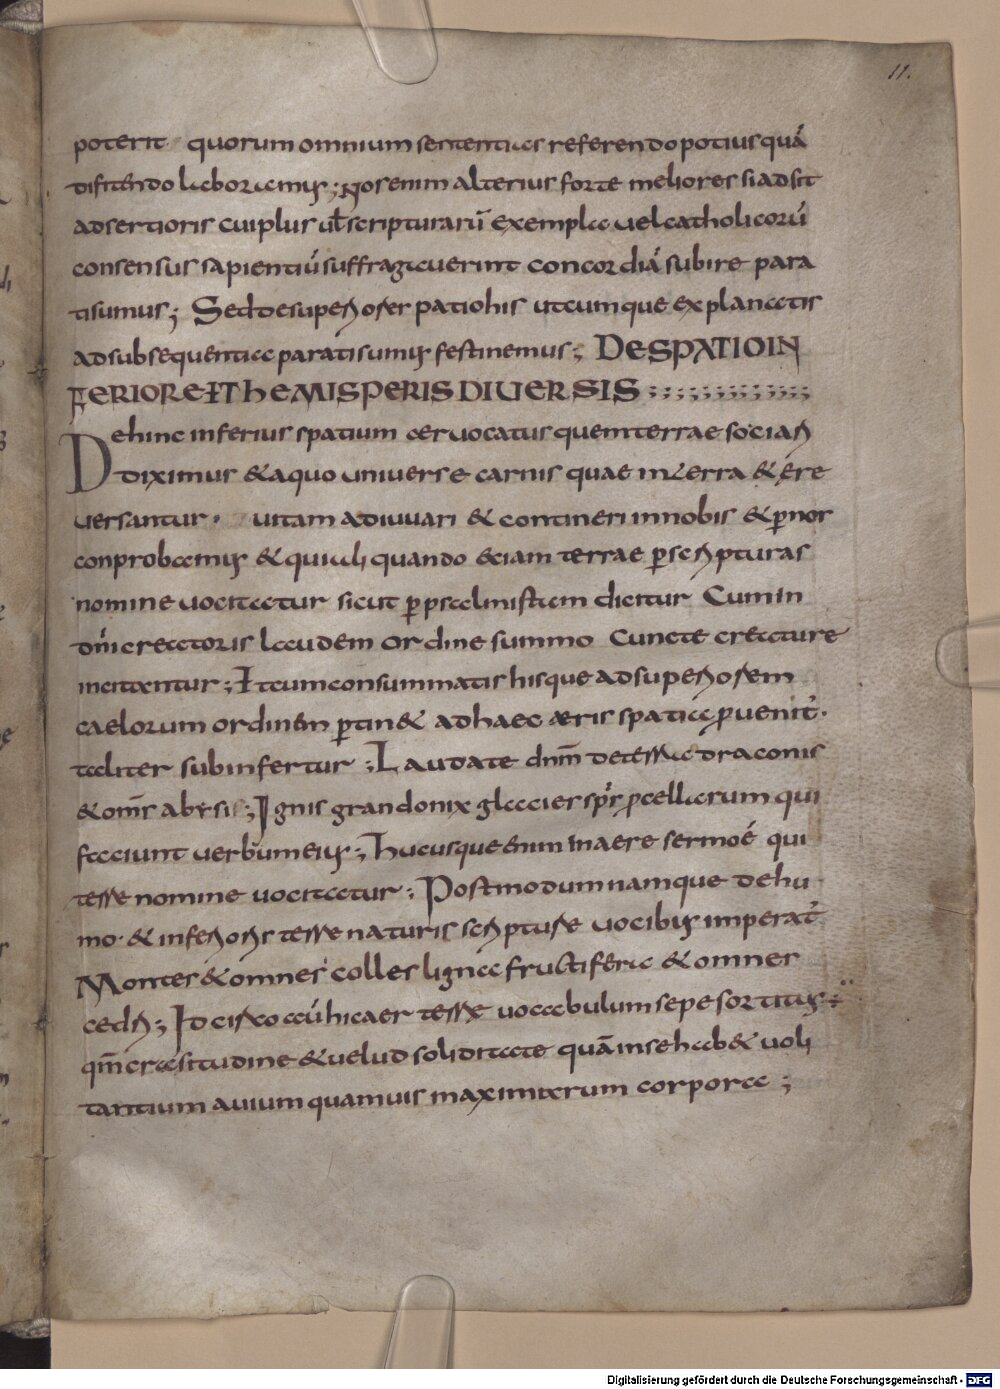 11.
poterit quorum omnium sententias referendo potius quā
difitendo laboramus; Nos enim alterius forte meliores si adsit
adsertioris cui plus ul scripturarū exempla uel catholicorū
consensus sapientiū suffragauerint concordiā subire para
ti sumus; Sed de superiore spatio his utcumque explanatis
ad subsequentia parati sumus festinemus; DE SPATIO IN
FERIORE ET HEMISPERIS DIVERSIS
Dehinc inferius spatium aer uocatus quem terrae sociari
diximus & a quo uniuerse carnis quae in terra & ere
uersantur. uitam adiuuari & contineri in nobis & p nor
conprobamus & qui ali quando &iam terrae p scripturas
nomine uocitatur sicut p psalmistam dicitur Cum in
dn̄i creatoris laudem ordine summo Cuncte creature
incitantur; Et cum consummatis hisque ad superiorem
caelorum ordinem ptin& ad haec aeris spatia puenit.
taliter sub infertur; Laudate dnm de terra draconis
& omīs abysi; Ignis grando nix glacier spr pcellarum qui
faciunt uerbum eius; Hucusque enim in aere sermoē qui
terre nomine uocitatur; Post modum namque de hu
mo. & inferioris terre naturis scripture uocibus imperat
Montes & omnes colles ligna fructifera & omnes
cedri; Id circo aū hic aer terre uocabulum sepe sortitus
qm̄ crasitudine & uelud soliditate quā in se hab& uoli
tantium auium quamuis maxim terum corpora;
Digitalisierung gefördert durch die Deutsche Forschungsgemeinschaft - DFG